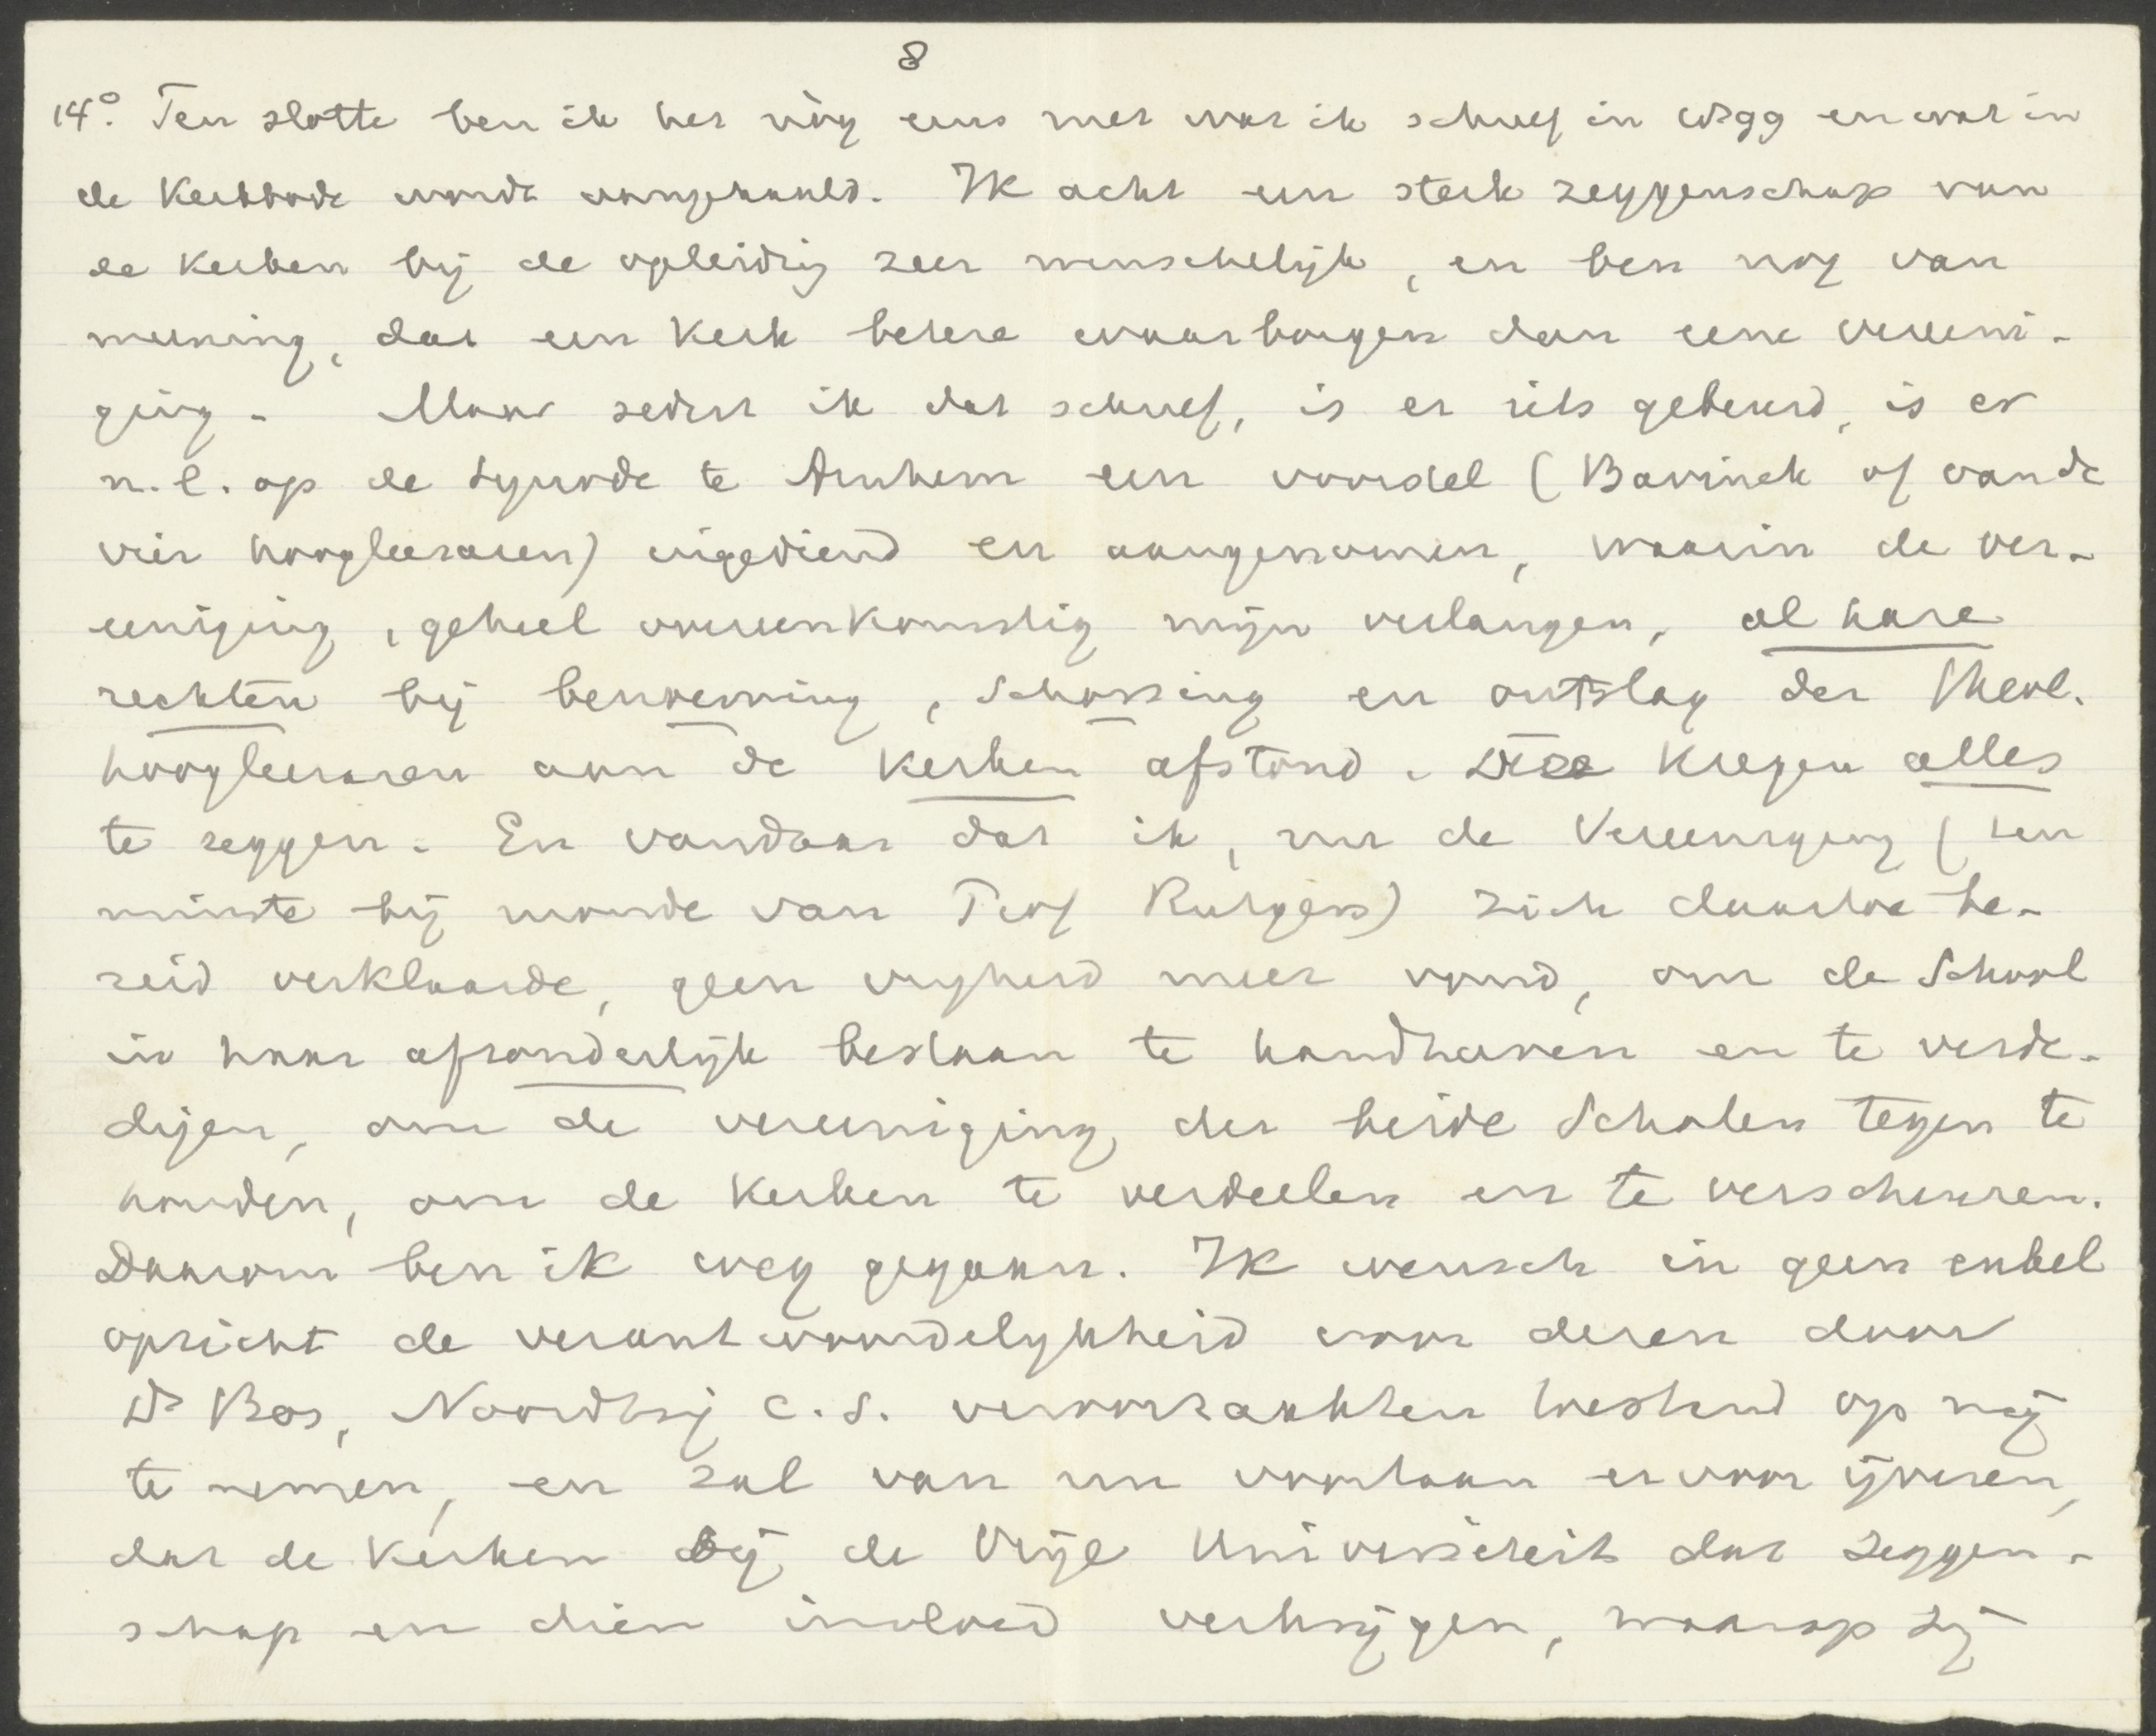 8
14º. Ten slotte ben ik het nòg eens met wat ik schreef in 1899 en wat in
de Kerkbode wordt aangehaald. IK acht een sterk zeggenschap van
de Kerken bij de opleiding zeer wenschelijk, en ben nog van
meening, dat een Kerk betere waarborgen dan eene vereeni-
ging. Maar sedert ik dat schreef, is er iets gebeurd, is er
n.l. op de Synode te Arnhem een voorstel (Bavinck of van de
vier hoogleeraren) ingediend en aangenomen, waarin de ver-
eeniging, geheel overeenkomstig mijn verlangen, al hare
rechten bij benoeming, schorsing en ontslag der theol.
hoogleeraren aan de Kerken afstond. Deze kregen alles
te zeggen. En vandaar dat ik, nu de Vereeniging (ten
minste bij monde van Prof Rutgers) zich daartoe be-
reid verklaarde, geen vrijheid meer vond, om de School
in haar afzonderlijk bestaan te handhaven en te verde-
digen, om de vereeniging der beide Scholen tegen te
houden, om de Kerken te verdeelen en te verscheuren.
Daarom ben ik weg gegaan. IK wensch in geen enkel
opzicht de verantwoordelijkheid voor dezen door
Ds Bos, Noordtzij c.s. veroorzaakten toestand op mij
te nemen, en zal van nu voortaan ervoor ijveren,
dat de Kerken bij de Vrije Universiteit dat zeggen-
schap en dien invloed verkrijgen, waarop zij